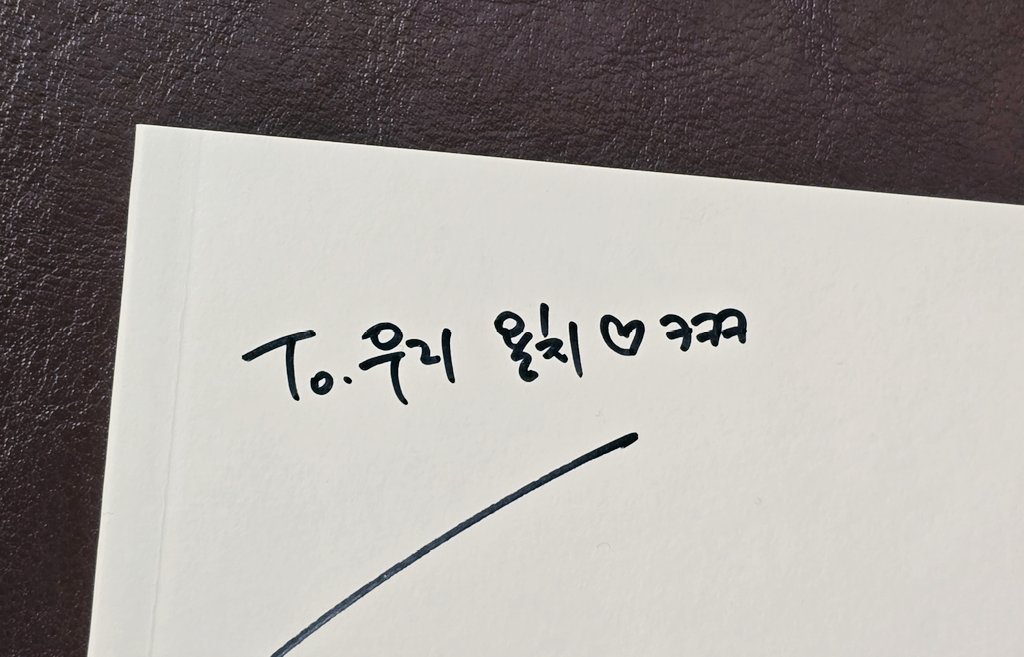 To. 우리 욜치♡ ㅋㅋㅋ